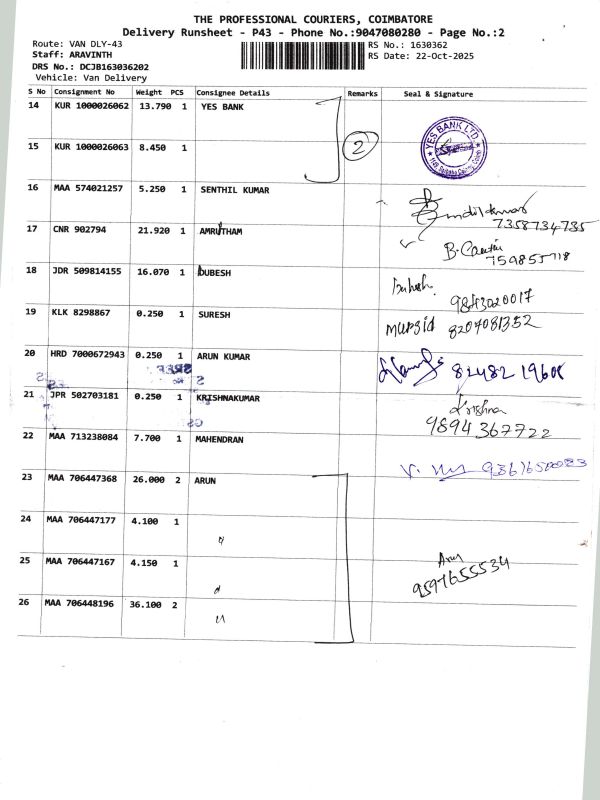 THE PROFESSIONAL COURIERS, COIMBATORE
Delivery Runsheet - P43 - Phone No.:9047080280 - Page No.:2
Route: VAN DLY-43 RS No.: 1630362
Staff: ARAVINTH RS Date: 22-Oct-2025
DRS No.: DCJB163036202
Vehicle: Van Delivery
S No Consignment No Weight PCS Consignee Details Remarks Seal & Signature
14 KUR 1000026062 13.790 1 YES BANK
15 KUR 1000026063 8.450 1 2 YES BANK LTD.
16 MAA 574021257 5.250 1 SENTHIL KUMAR
7358734735
17 CNR 902794 21.920 1 AMRUTHAM B.
18 JDR 509814155 16.070 1 DUBESH
9843020017
19 KLK 8298867 0.250 1 SURESH Mursid 8207081352
20 HRD 7000672943 0.250 1 ARUN KUMAR 82482 19608
21 JPR 502703181 0.250 1 KRISHNAKUMAR Krishna
9894367722
22 MAA 713238084 7.700 1 MAHENDRAN V.
23 MAA 706447368 26.000 2 ARUN
24 MAA 706447177 4.100 1 "
25 MAA 706447167 4.150 1 " Arun
9597655534
26 MAA 706448196 36.100 2 "